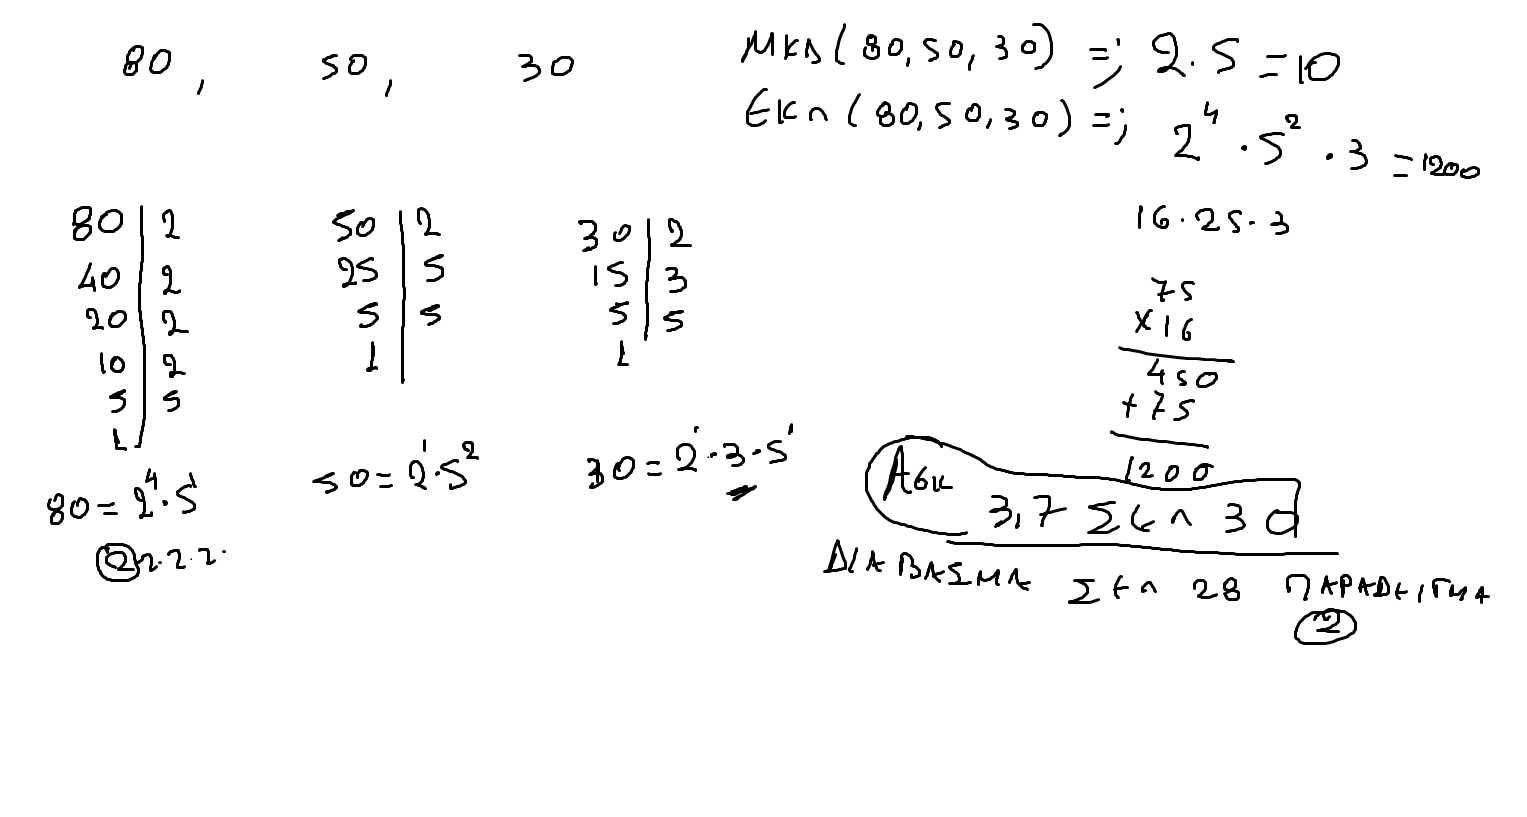 80, 50, 30
ΜΚΔ(80,50,30) =; 2·5=10
ΕΚΠ(80,50,30) =; 2⁴·5²·3=1200
16·25·3
80|2
40|2
20|2
10|2
5|5
1
50|2
25|5
5|5
1
30|2
15|3
5|5
1
80=2⁴·5¹
2·2·2·2·
50=2¹·5²
30=2¹·3·5¹
75
×16
450
+75
1200
Ασκ 3,7 Σελ 30
ΔΙΑΒΑΣΜΑ Σελ 28 ΠΑΡΑΔΕΙΓΜΑ
2